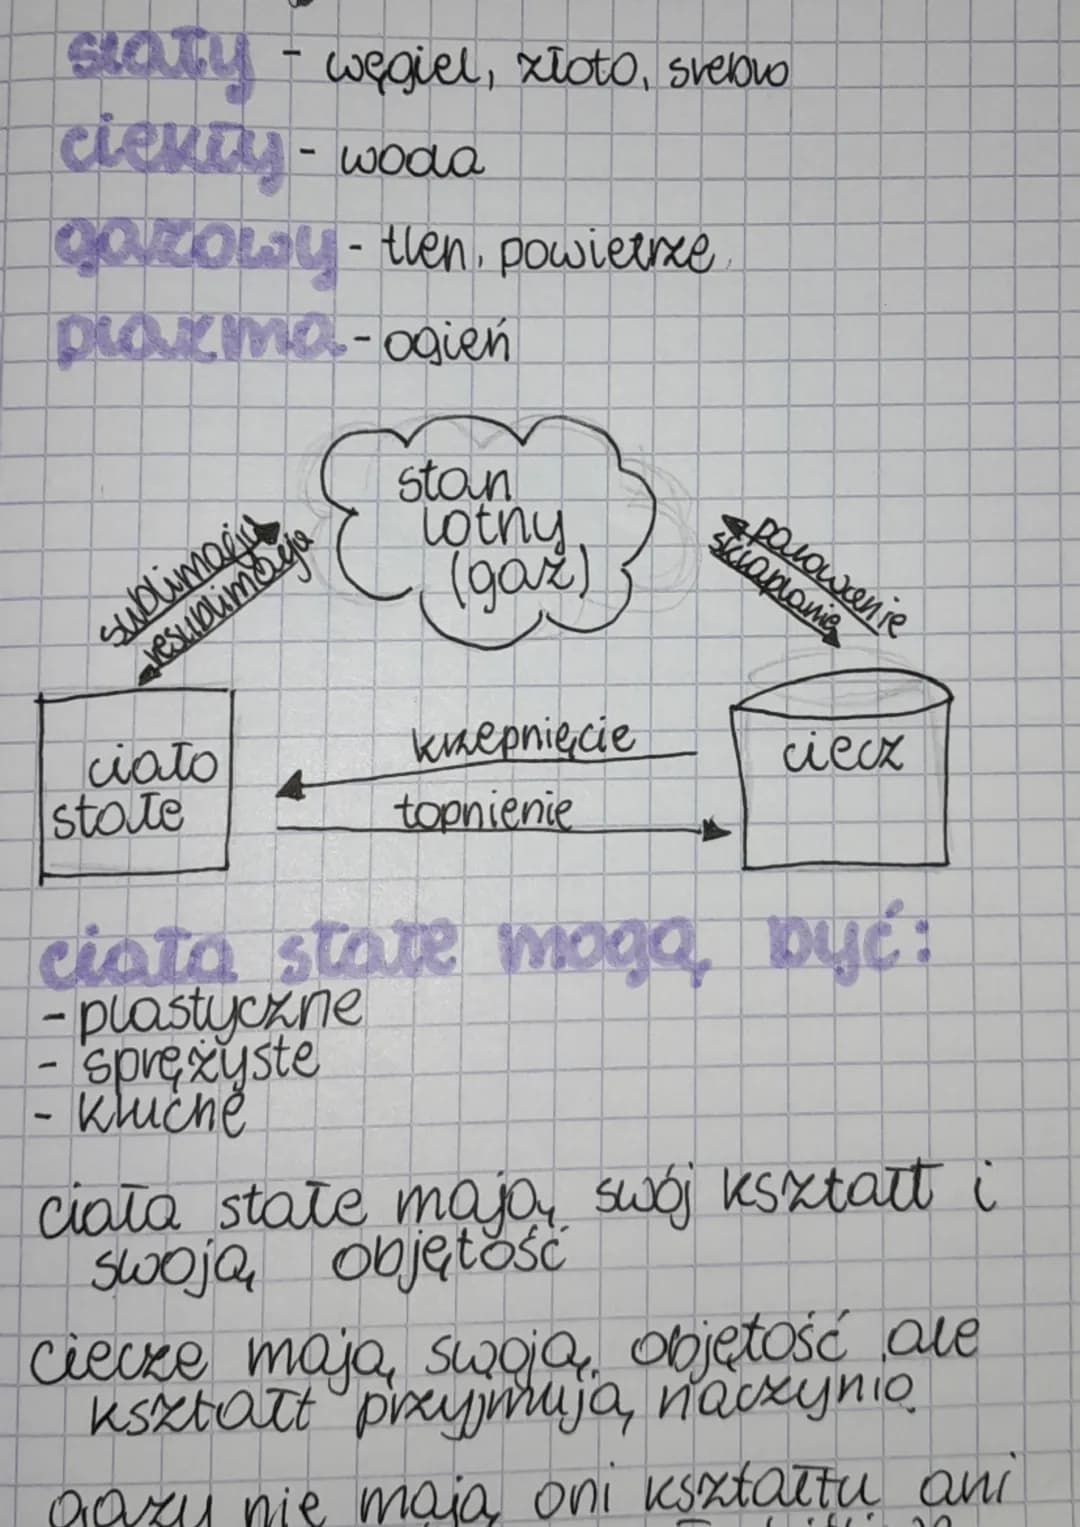 stały - węgiel, złoto, srebro
ciekły - woda
gazowy - tlen, powietrze
plazma - ogień
stan
lotny
(gaz)
sublimacja
resublimacja
parowanie
skraplanie
ciało
stałe
krzepnięcie
topnienie
ciecz
ciała stałe mogą być:
- plastyczne
- sprężyste
- kruche
ciała stałe mają swój kształt i
swoją objętość
ciecze mają swoją objętość ale
kształt przyjmują naczynia
gazy nie mają oni kształtu ani